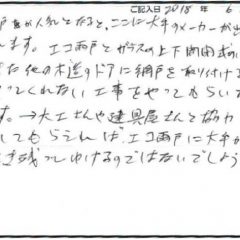 ご記入日 2018 年 6
戸が人気となると、ここに大手のメーカーが出
ます。エコ雨戸とガラスの上下開閉式の
た他の木造のドアに網戸を取り付ける
ってくれない工事をやってもらいた
す。→大工さんや建具屋さんと協力
してもらえれば、エコ雨戸に大手が
き残ってゆけるのではないでしょう